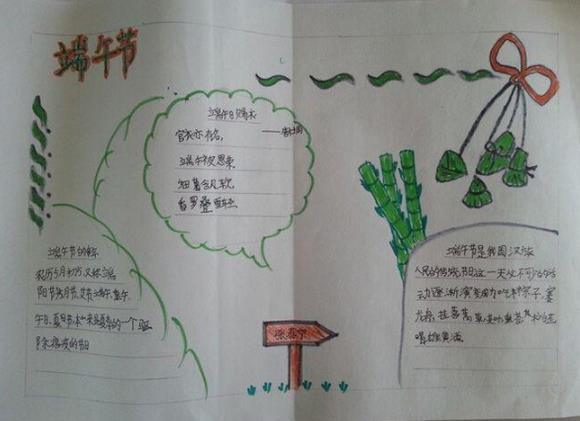 端午节
端午日赐衣
——杜甫
宫衣亦有名,
端午被恩荣
细葛含风软,
香罗叠雪轻
端午节的
农历5月初5,又称端
阳节
午日、夏节,本来是夏季的一个驱
除瘟疫的节日
端午节是我国汉族
人民的传统节日这一天必不可少的活
动逐渐演变为吃粽子,赛
龙舟,挂菖蒲
喝雄黄酒